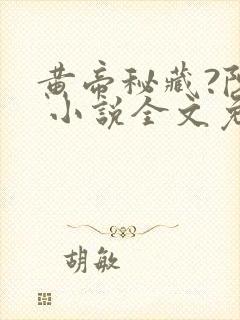 黄帝秘藏?阴
小说全文免
胡敏